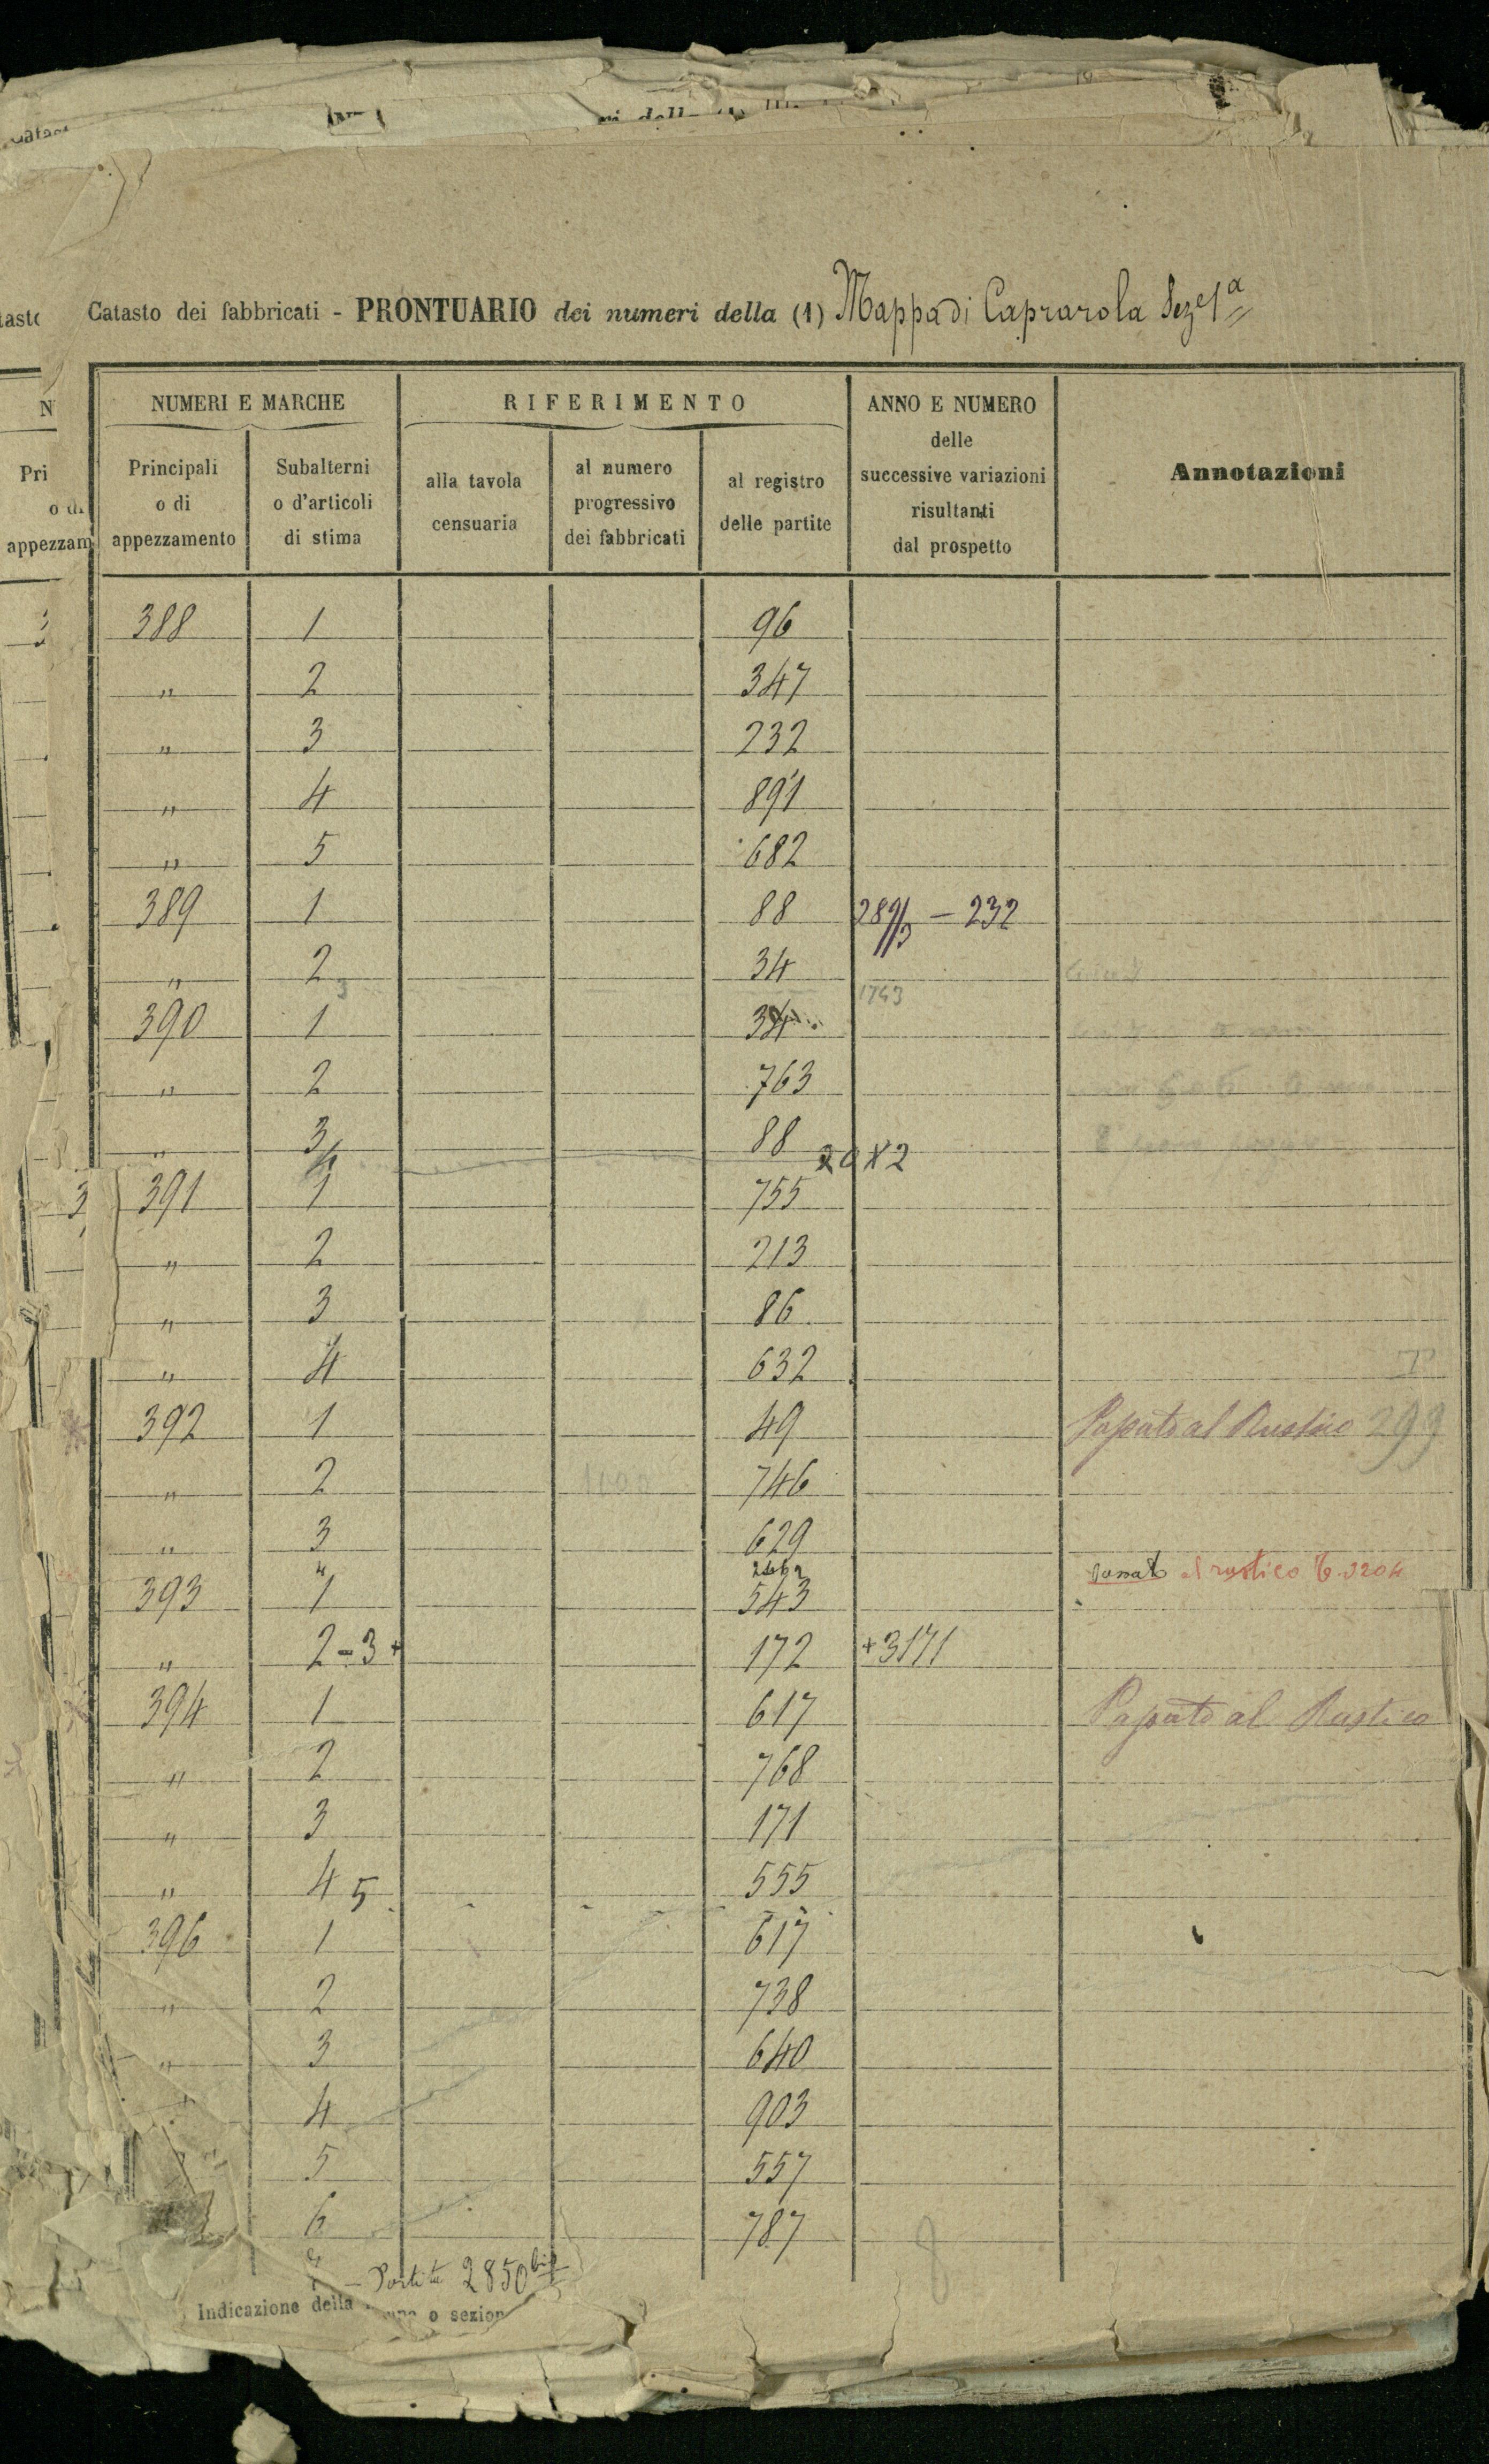 Catasto dei fabbricati - PRONTUARIO dei numeri della (1) Mappa di Caprarola Sez.e 1a
NUMERI E MARCHE
RIFERIMENTO
ANNO E NUMERO
delle
successive variazioni
risultanti
dal prospetto
Annotazioni
Principali
o di
appezzamento
Subalterni
o d'articoli
di stima
alla tavola
censuaria
al numero
progressivo
dei fabbricati
al registro
delle partite
388 1 96
" 2 347
" 3 232
" 4 891
" 5 682
389 1 88 - 232
" 2 34
3 1743
390 1
" 2 763
" 3 88
4 2082
391 1 755
" 2 213
" 3 86
" 4 632
392 1 49 Passato al Rustico 299
" 2 746
" 3 629
4 passato al rustico
393 1 543
" 2 - 3 + 172 + 3171
394 1 617 Passato al Rustico
" 2 768
" 3 171
" 4 5 555
396 1 617
" 2 738
" 3 640
4 903
5 557
6 787
7 - Partita 2850 bis
Indicazione della o sezion